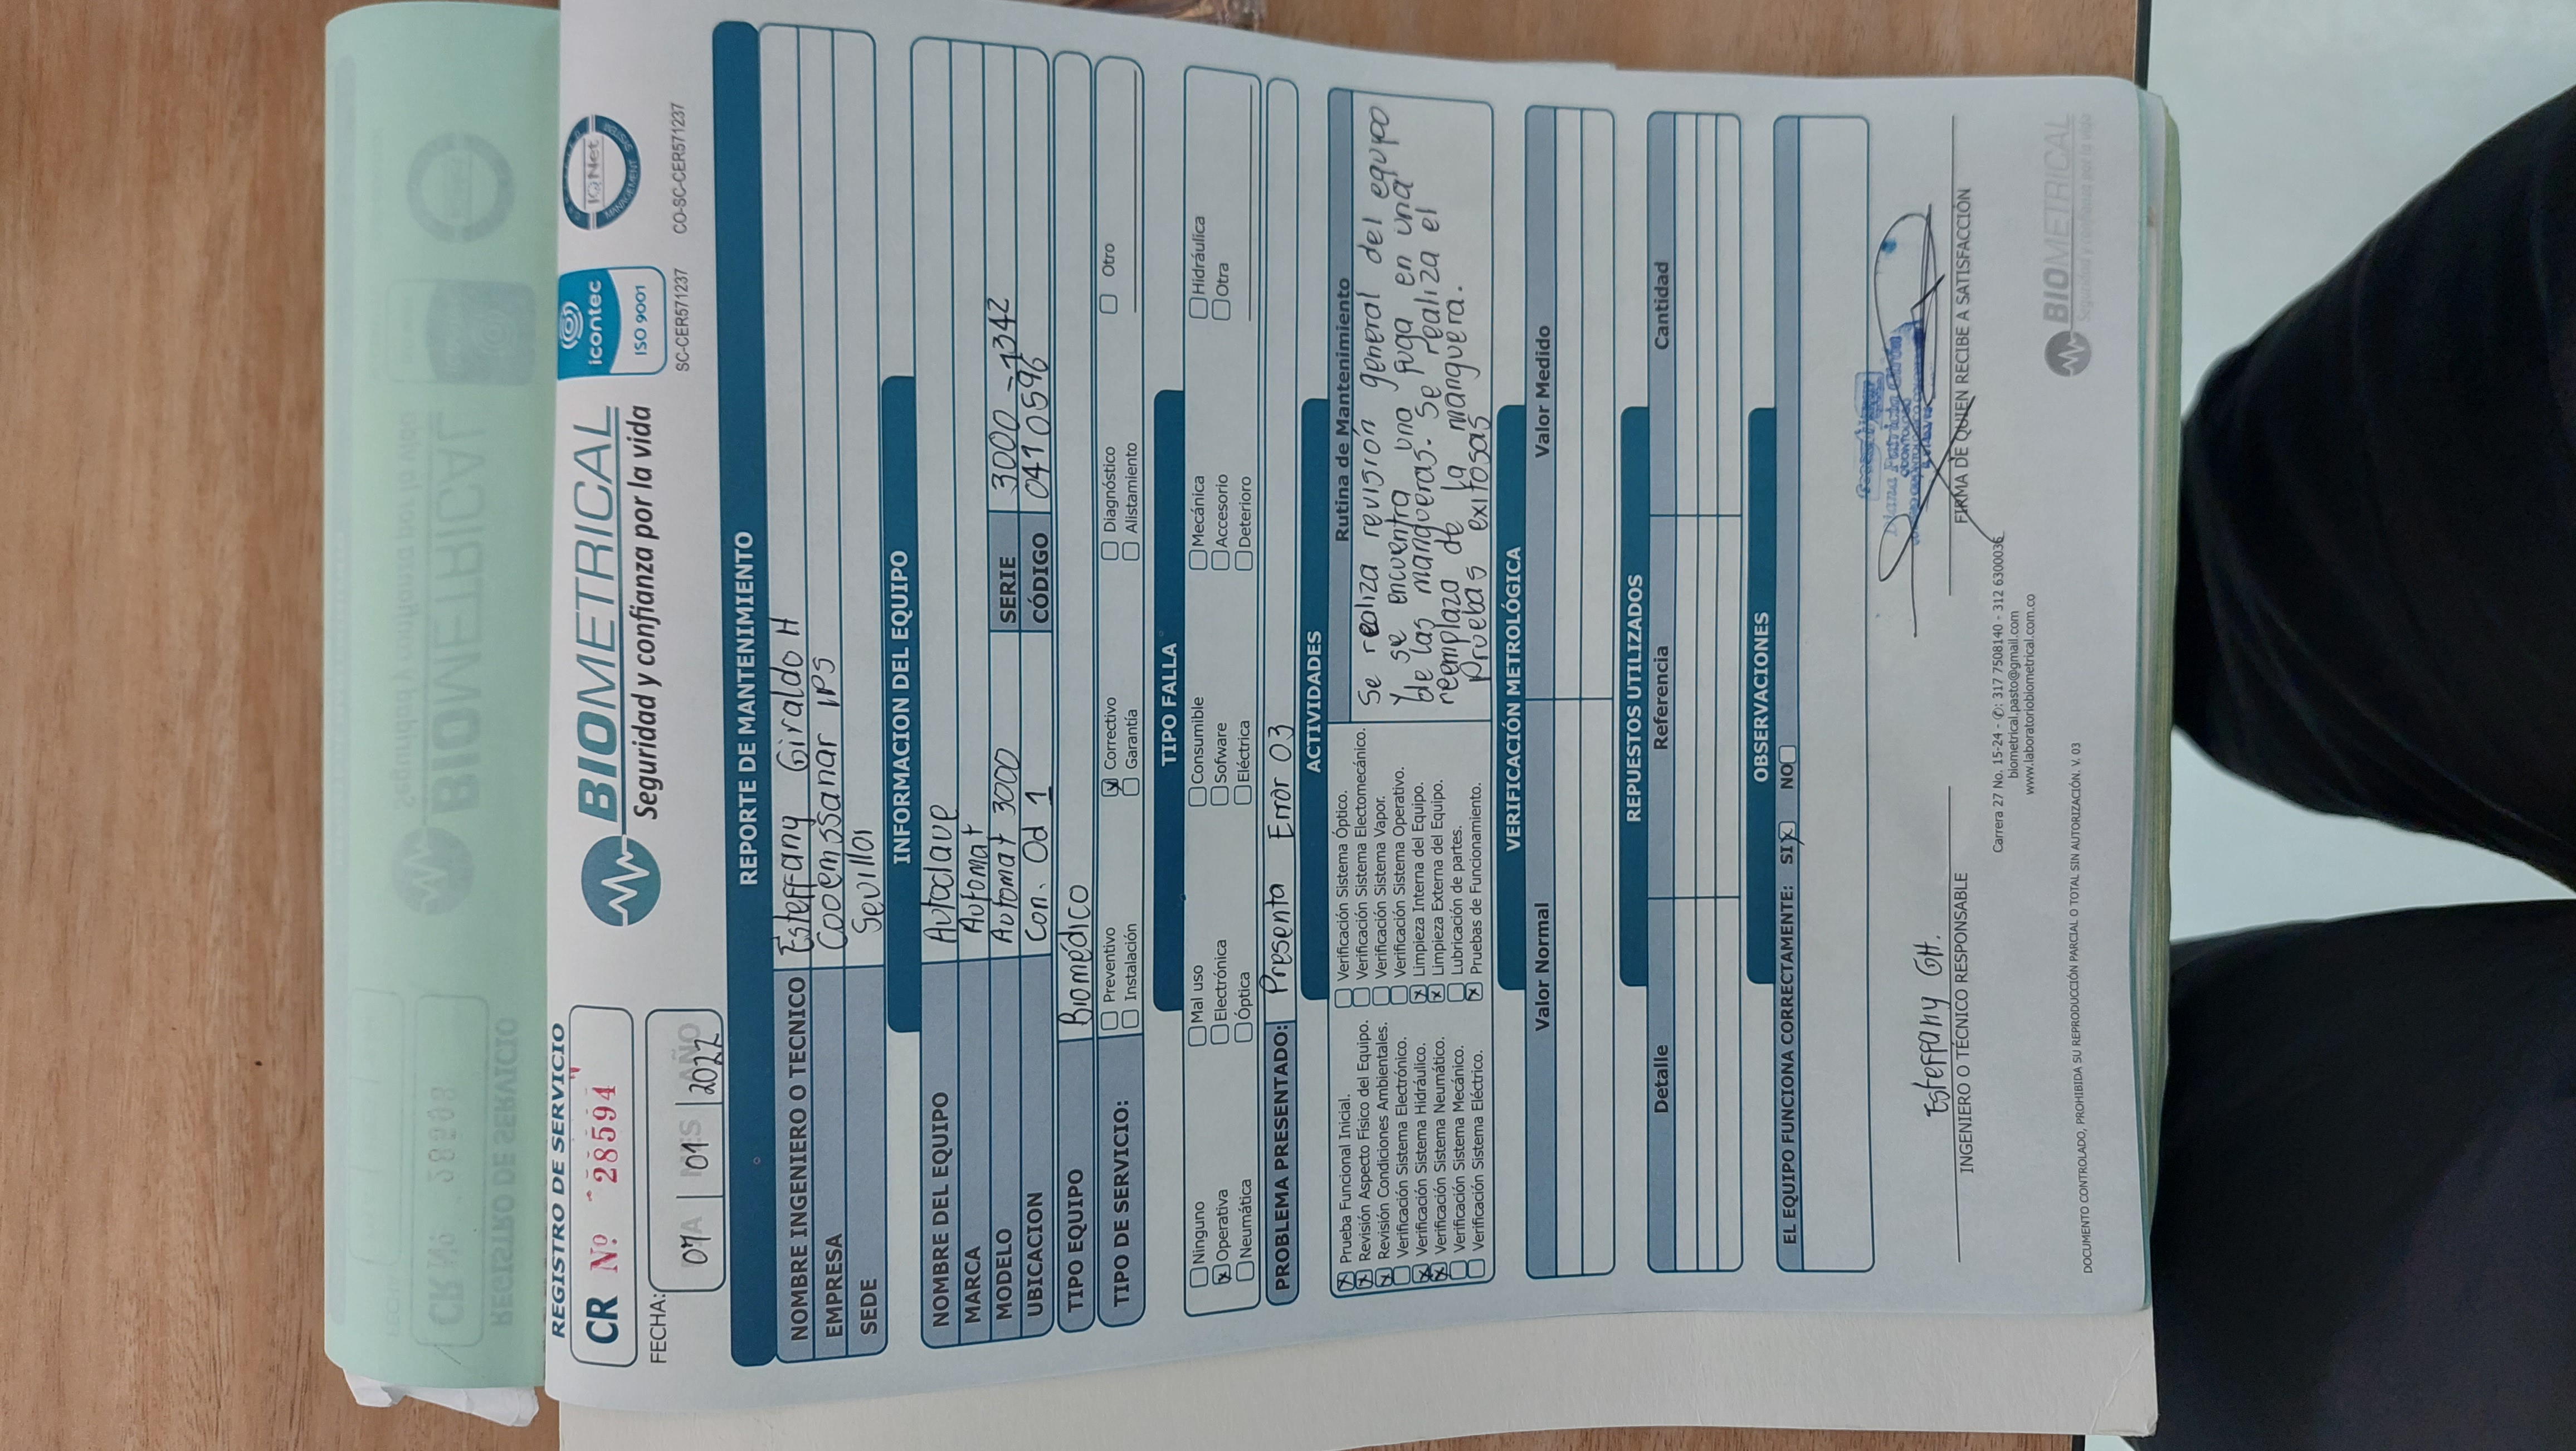 REGISTRO DE SERVICIO
CR Nº 28594
BIOMETRICAL
Seguridad y confianza por la vida
icontec
ISO 9001
SC-CER571237
IQNet
MANAGEMENT SYSTEM
CO-SC-CER571237
FECHA:
DIA MES AÑO
07 01 2022
REPORTE DE MANTENIMIENTO
NOMBRE INGENIERO O TECNICO Esteffany Giraldo H
EMPRESA Cooemssanar IPS
SEDE Sevilla
INFORMACION DEL EQUIPO
NOMBRE DEL EQUIPO Autoclave
MARCA Automat
MODELO Automat 3000 SERIE 3000 - 1342
UBICACION Con. Od 1 CÓDIGO 0410596
TIPO EQUIPO Biomédico
TIPO DE SERVICIO:
Preventivo Correctivo Diagnóstico Otro
Instalación Garantía Alistamiento
TIPO FALLA
Ninguno Mal uso Consumible Mecánica Hidráulica
Operativa Electrónica Sofware Accesorio Otra
Neumática Óptica Eléctrica Deterioro
PROBLEMA PRESENTADO: Presenta Error 03
ACTIVIDADES
Prueba Funcional Inicial.
Revisión Aspecto Físico del Equipo.
Revisión Condiciones Ambientales.
Verificación Sistema Electrónico.
Verificación Sistema Hidráulico.
Verificación Sistema Neumático.
Verificación Sistema Mecánico.
Verificación Sistema Eléctrico.
Verificación Sistema Óptico.
Verificación Sistema Electomecánico.
Verificación Sistema Vapor.
Verificación Sistema Operativo.
Limpieza Interna del Equipo.
Limpieza Externa del Equipo.
Lubricación de partes.
Pruebas de Funcionamiento.
Rutina de Mantenimiento
Se realiza revisión general del equipo
y se encuentra una fuga en una
de las mangueras. Se realiza el
reemplazo de la manguera.
Pruebas exitosas
VERIFICACIÓN METROLÓGICA
Valor Normal Valor Medido
REPUESTOS UTILIZADOS
Detalle Referencia Cantidad
OBSERVACIONES
EL EQUIPO FUNCIONA CORRECTAMENTE: SI NO
Esteffany GH.
INGENIERO O TÉCNICO RESPONSABLE
Diana Patricia
ODONTOLOGO
FIRMA DE QUIEN RECIBE A SATISFACCIÓN
Carrera 27 No. 15-24 - ✆: 317 7508140 - 312 6300036
biometrical.pasto@gmail.com
www.laboratoriobiometrical.com.co
DOCUMENTO CONTROLADO, PROHIBIDA SU REPRODUCCIÓN PARCIAL O TOTAL SIN AUTORIZACIÓN. V. 03
BIOMETRICAL
Seguridad y confianza por la vida